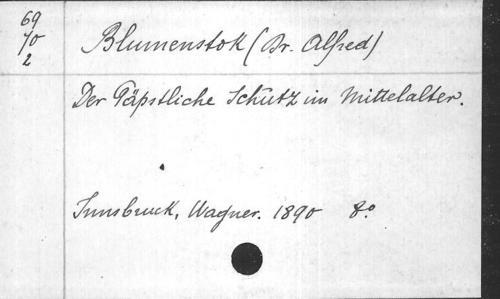 69
70
2
Blumenstok (Dr. Alfred)
Der Päpstliche Schutz im Mittelalter.
Innsbruck, Wagner. 1890 8º